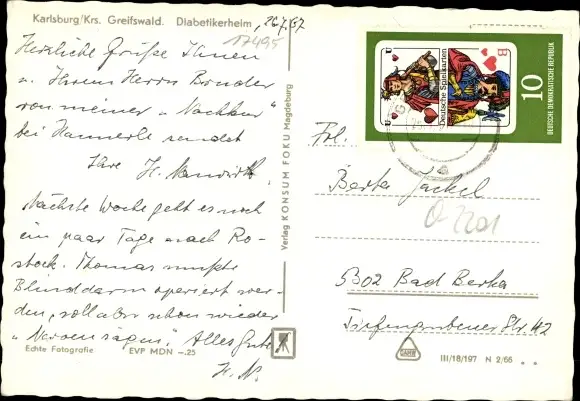 Karlsburg/Krs. Greifswald. Diabetikerheim
, 26.7.67
17495
Herzliche Grüße Ihnen
u. Ihrem Herrn Bruder
von meiner "Nachkur"
bei Hannerle sendet
Ihre H.
Nächste Woche geht es noch
ein paar Tage nach Ro-
stock. Thomas mußte
Blinddarm operiert wer-
den, soll aber schon wieder
Alles Gute
H. N.
Echte Fotografie EVP MDN -.25
Verlag KONSUM FOKU Magdeburg
Deutsche Spielkarten
10
DEUTSCHE DEMOKRATISCHE REPUBLIK
B
Frl.
Berta Jackel
5302 Bad Berka
Tiefengrubener Str. 42
III/18/197 N 2/66